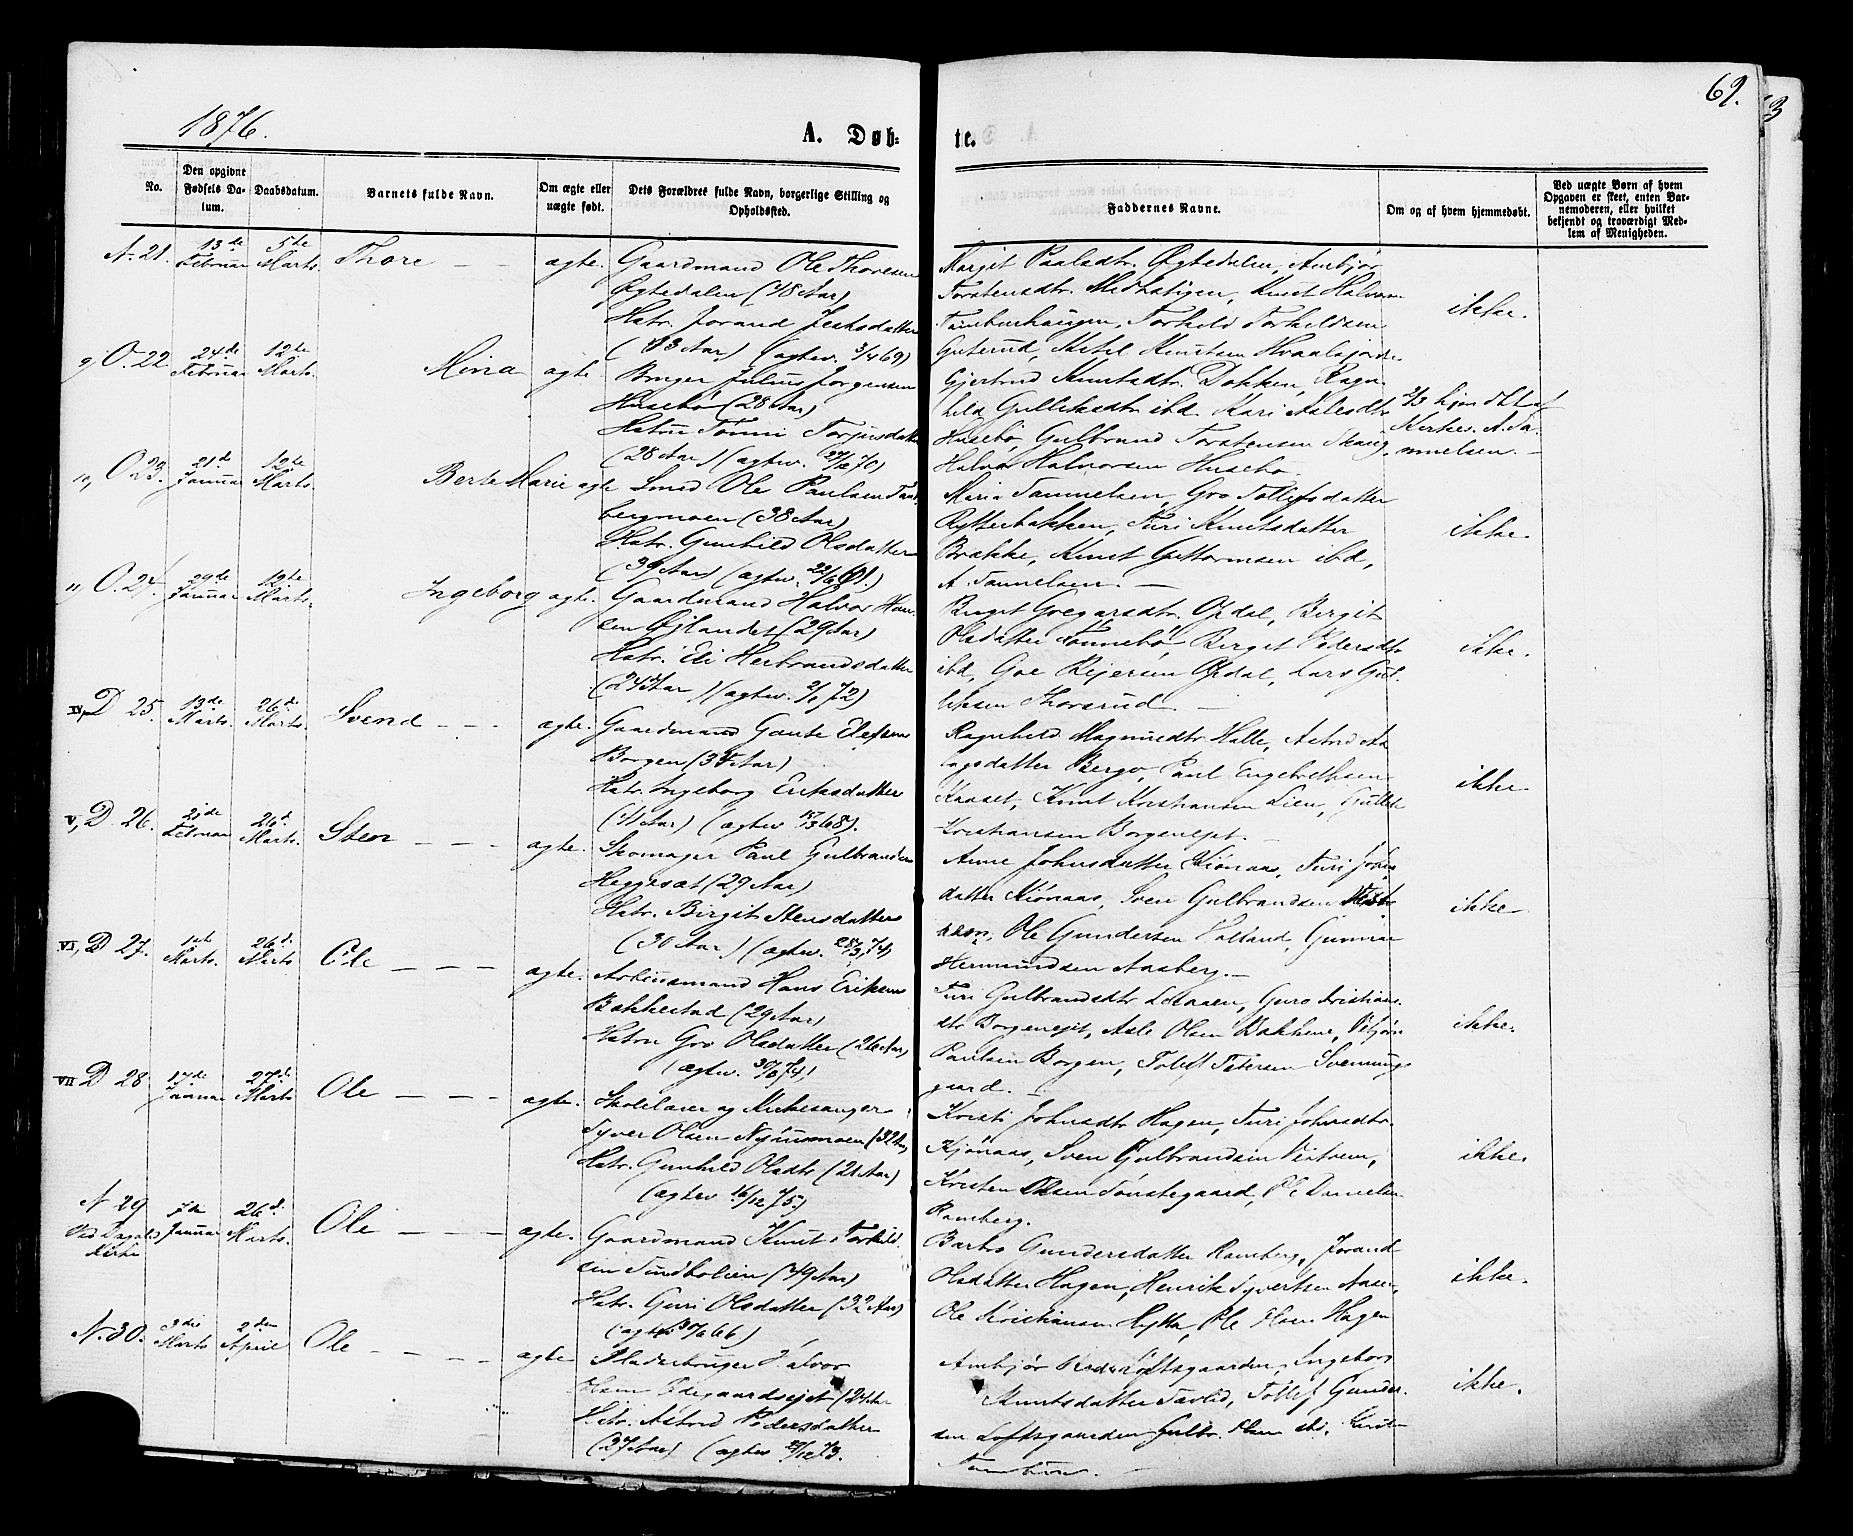 1876.
A. Døb-
te.
69.
No.
Den opgivne Fødsels Da-
tum.
Daabsdatum.
Barnets fulde Navn.
Om ægte eller
uægte født.
Dets Forældres fulde Navn, borgerlige Stilling og
Opholdssted.
Faddernes Navne.
Om og af hvem hjemmedøbt.
Ved uægte Børn af hvem
Opgaven er skeet, enten Bar-
nemoderen, eller hvilket
bekjendt og troværdigt Med-
lem af Menigheden.
N. 21.
13de Februar
5te Marts.
Thore
ægte.
Gaardmand Ole Thoresen
Øgtedalen (48 Aar)
Hstr. Jorand
(43 Aar) (ægtev. 3/4 69)
Marget Paalsdtr. Øgtedalen, Ambjør
Torstensdtr. Knut Halvorsen
Torkild Torkildsen
Guterud, Ketil Knutsen
ikke.
O. 22.
24de Februar
12te Marts.
Mina
ægte.
Bruger Julius Jørgensen
Husebø (28 Aar)
Hstru Tonni Torjusdatter
(28 Aar) (ægtev. 27/12 70)
Gjertrud Knutsdtr. Dokken, Ragn-
hild Gulliksdtr. ibd. Kari Asledtr.
Husebø, Gulbrand Torstensen
Halvor Halvorsen Husebø.
2/3 hjemdøbt af
Kirkes. A. Sa-
muelsen.
O 23.
21de Januar
12te Marts.
Berte Marie
ægte
Smed Ole Paulsen
bergmoen (38 Aar)
Hstr. Gunhild Olsdatter
(39 Aar) (ægtev. 22/6 61.)
Maria Samuelsen, Gro Tollefsdatter
Rytterbakken, Turi Knutsdatter
Brække, Knut Guttormsen ibd,
A. Samuelsen.
ikke.
O. 24.
29de Januar
12te Marts.
Ingeborg
ægte.
Gaardmand Halvor Han-
sen Øjlandet (29 Aar)
Hstr. Eli Herbrandsdatter
(24 Aar) (ægtev. 2/1 72)
Birget Gregarsdtr. Opdal, Bergit
Olsdatter Tonnebø, Berget Pedersdtr.
ibd, Opdal, Lars Gul-
liksen Thorsrud.
ikke.
IV, D 25.
13de Marts.
26de Marts.
Svend
ægte.
Gaardmand Gaute Elefsen
Borgen (35 Aar)
Hstr. Ingeborg Eriksdatter
(41 Aar) (ægtev 68).
Ragnhild Magnusdtr. Halle, Astrid As-
lagsdatter Bergo, Paul Engebrethsen
Kaaset, Knut Kristiansen Lien, Gullik
Kristiansen Borgenejet.
ikke.
V, D 26.
21de Februar
26de Marts.
Sten
ægte.
Skomager Paul Gulbrandsen
Heggesæt (29 Aar)
Hstr. Birgit Stensdatter
(30 Aar) (ægtev. 28/3 74)
Anne Johnsdatter Kjønaas, Turi Johns-
datter Kjønaas, Sven Gulbrandsen
Ole Gundersen Holland, Gunnar
Hermundsen Aasberg.
ikke
VI, D 27.
1ste Marts.
26de Marts
Ole
ægte.
Arbeidsmand Hans Eriksen
Bakkestad (29 Aar)
Hstru Gro Olsdatter (26 Aar)
(ægtev. 30/6 74)
Turi Gulbrandsdtr. Guro Kristians-
dtr. Borgenejet, Asle Olsen Bakkene,
Paulsen Borgen, Tollef Petersen Svenunng-
gaard.
ikke.
VII D 28
17de Januar
27de Marts
Ole
ægte.
Skolelærer og Kirkesanger
Syver Olsen (32 Aar)
Hstr. Gunhild Olsdtr (21 Aar)
(ægtev 16/12 75.)
Kristi Johnsdtr. Hagen, Turi Johnsdtr.
Kjønaas, Sven Gulbrandsen
Kristen Olsen Tonstegaard,
Ramberg.
ikke.
N 29
Ved Dagalis
Kirke
7de Januar
26de Marts.
Ole
ægte.
Gaardmand Knut Torkild-
sen Sundbolien (49 Aar)
Hstr. Guri Olsdatter (32 Aar)
(ægtev 30/6 66)
Barbro Gundersdatter Ramberg, Jorand
Olsdatter Hagen, Henrik Syvertsen Aasen,
Ole Kristiansen Hytta, Ole Olsen Hagen
ikke.
N. 30.
3die Marts
2den April
Ole
ægte
Pladsbruger Halvor
Olsen Ødegaardsejet (24 Aar
Hstr. Astrid Pedersdatter
(37 Aar) (ægtev 29/12 73.
Ambjør Loftsgaarden, Ingeborg
Knutsdatter Tollef Gunder-
sen Loftsgaarden Gulbr. Olsen ibd.
ikke.